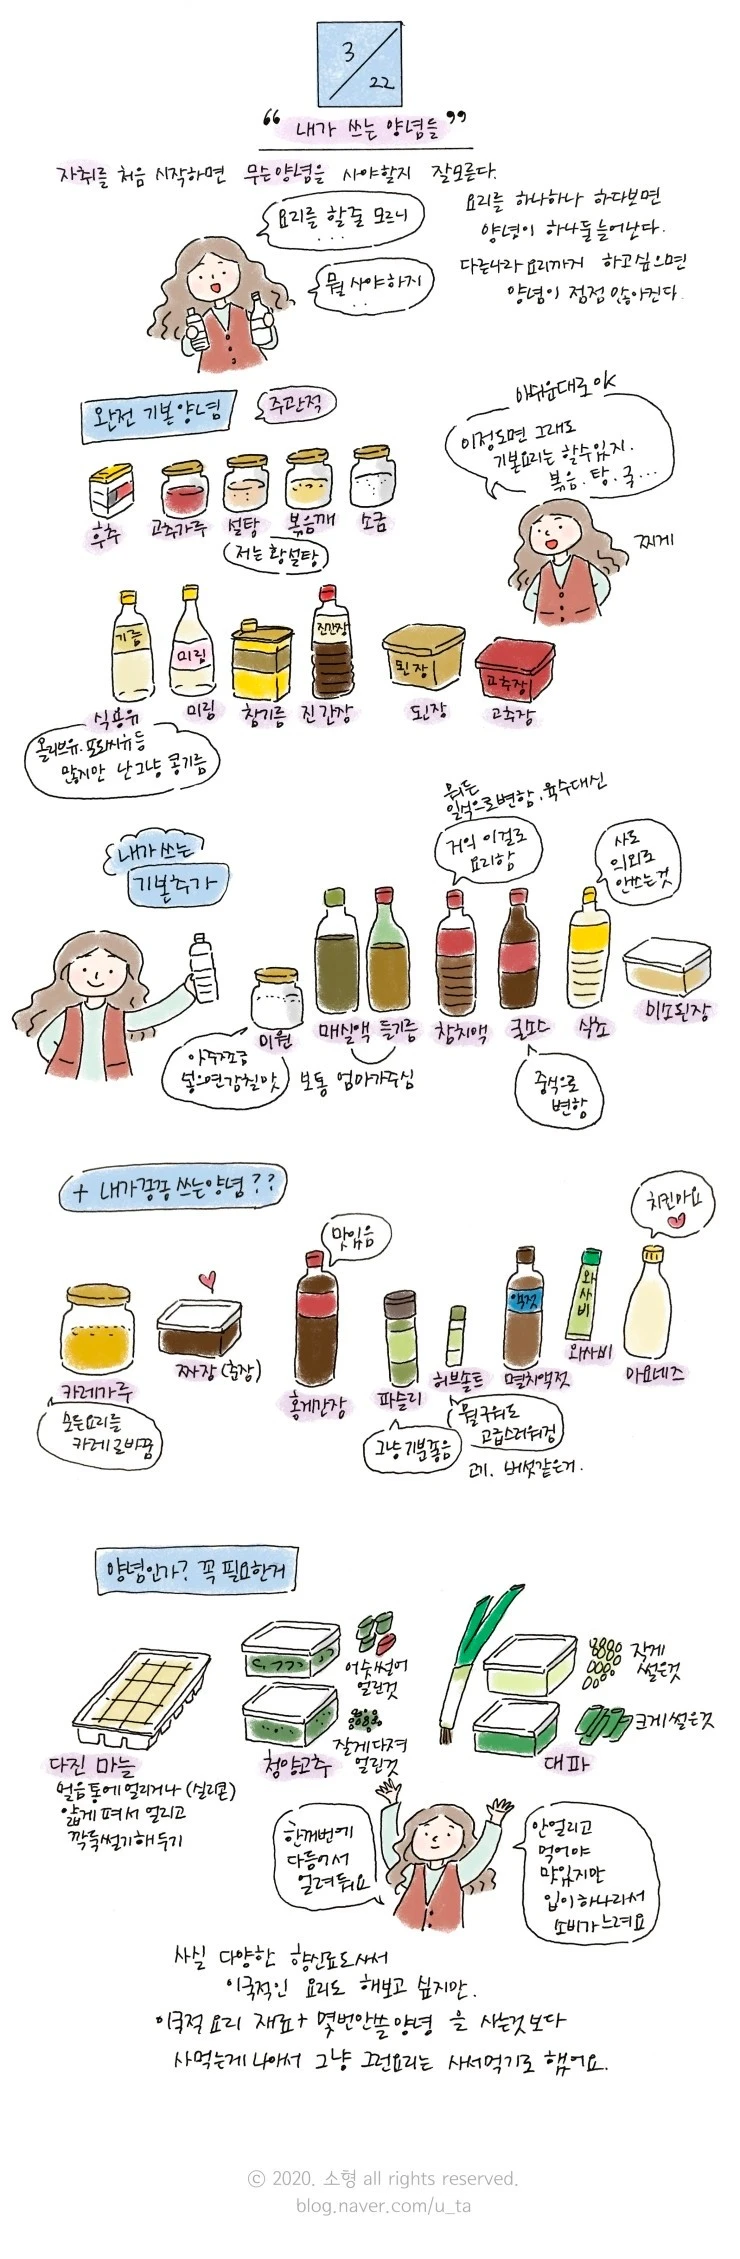 3/22
"내가 쓰는 양념들"
자취를 처음 시작하면 무슨양념을 사야할지 잘모른다.
요리를 할줄 모르니
...
뭘 사야하지
..
요리를 하나하나 하다보면
양념이 하나둘늘어난다.
다른나라요리까지 하고싶으면
양념이 점점 많아진다.
완전 기본양념
주관적
아쉬운대로 OK
이정도면 그래도
기본요리는 할수있지.
볶음. 탕. 국...
찌게
후추
고춧가루
설탕
볶음깨
소금
저는 황설탕
기름
미림
진간장
된장
고추장
식용유
미림
참기름
진간장
된장
고추장
올리브유. 포도씨유 등
많지만 난 그냥 콩기름
내가 쓰는
기본추가
뭐든
일식으로변함. 육수대신
거의 이걸로
요리함
사도
의외로
안쓰는것
미원
매실액
들기름
참치액
굴소스
식초
미소된장
아주조금
넣으면감칠맛
보통 엄마가주심
중식으로
변함
+ 내가종종 쓰는양념??
맛있음
치킨마요
액젓
와사비
카레가루
짜장(춘장)
홍게간장
파슬리
허브솔트
멸치액젓
와사비
마요네즈
모든요리를
카레로바꿈
그냥기분좋음
뭘구워도
고급스러워짐
고기. 버섯같은거.
양념인가? 꼭 필요한거
어슷썰어
얼린것
잘게다져
얼린것
잘게
썰은것
크게썰은것
다진 마늘
청양고추
대파
얼음통에얼리거나 (실리콘)
얇게 펴서 얼리고
깍둑썰기해두기
한꺼번에
다듬어서
얼려둬요
안얼리고
먹어야
맛있지만
입이하나라서
소비가느려요
사실 다양한 향신료도사서
이국적인 요리도 해보고 싶지만.
이국적요리 재료+ 몇번안쓸양념 을 사는것보다
사먹는게나아서 그냥 그런요리는 사서먹기로 했어요.
© 2020. 소형 all rights reserved.
blog.naver.com/u_ta